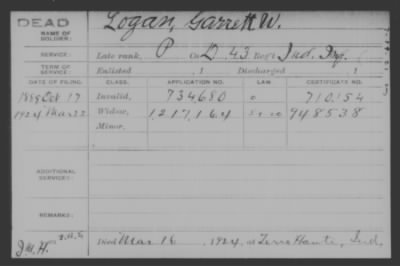 DEAD
NAME OF SOLDIER: Logan, Garrett W.
SERVICE: Late rank, P Co. D, 43 Reg't Ind. Inf.
TERM OF SERVICE: Enlisted , 1 Discharged , 1
DATE OF FILING. CLASS. APPLICATION NO. LAW. CERTIFICATE NO.
1889 Oct 17 Invalid, 734,680 710,154
1924 Mar 22 Widow, 1217,164 948538
Minor,
ADDITIONAL SERVICES:
REMARKS:
J.M.H. Died Mar 18, 1924, at Terre Haute, Ind.